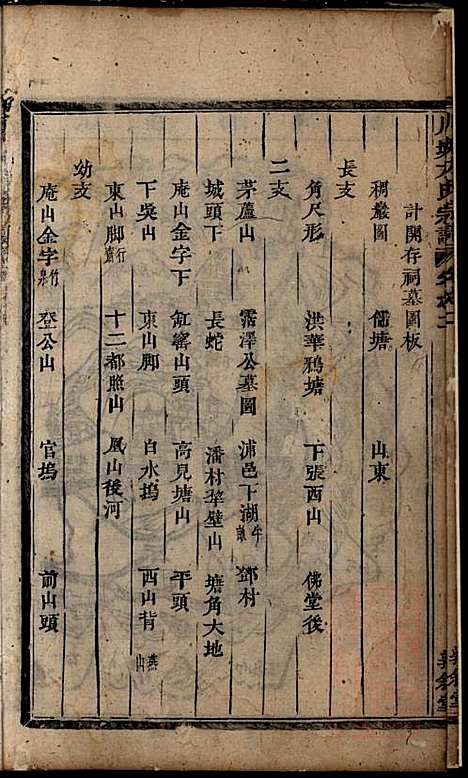 計開存祠墓圖板
稠巖圖 儒塘 山東
長支
角尺形 洪華鴉塘 下張西山 佛堂後
二支
茅蘆山 霑澤公墓圖 浦邑下湖 鄧村
城頭下 長蛇 潘村犂壁山 塘角大地
庵山金字下 缸窰山頭 高見塘山 平頭
下吳山 東山脚 白水塢 西山背 燕山
東山脚 十二都照山 風山後河
幼支
庵山金字 登公山 官塢 前山頭